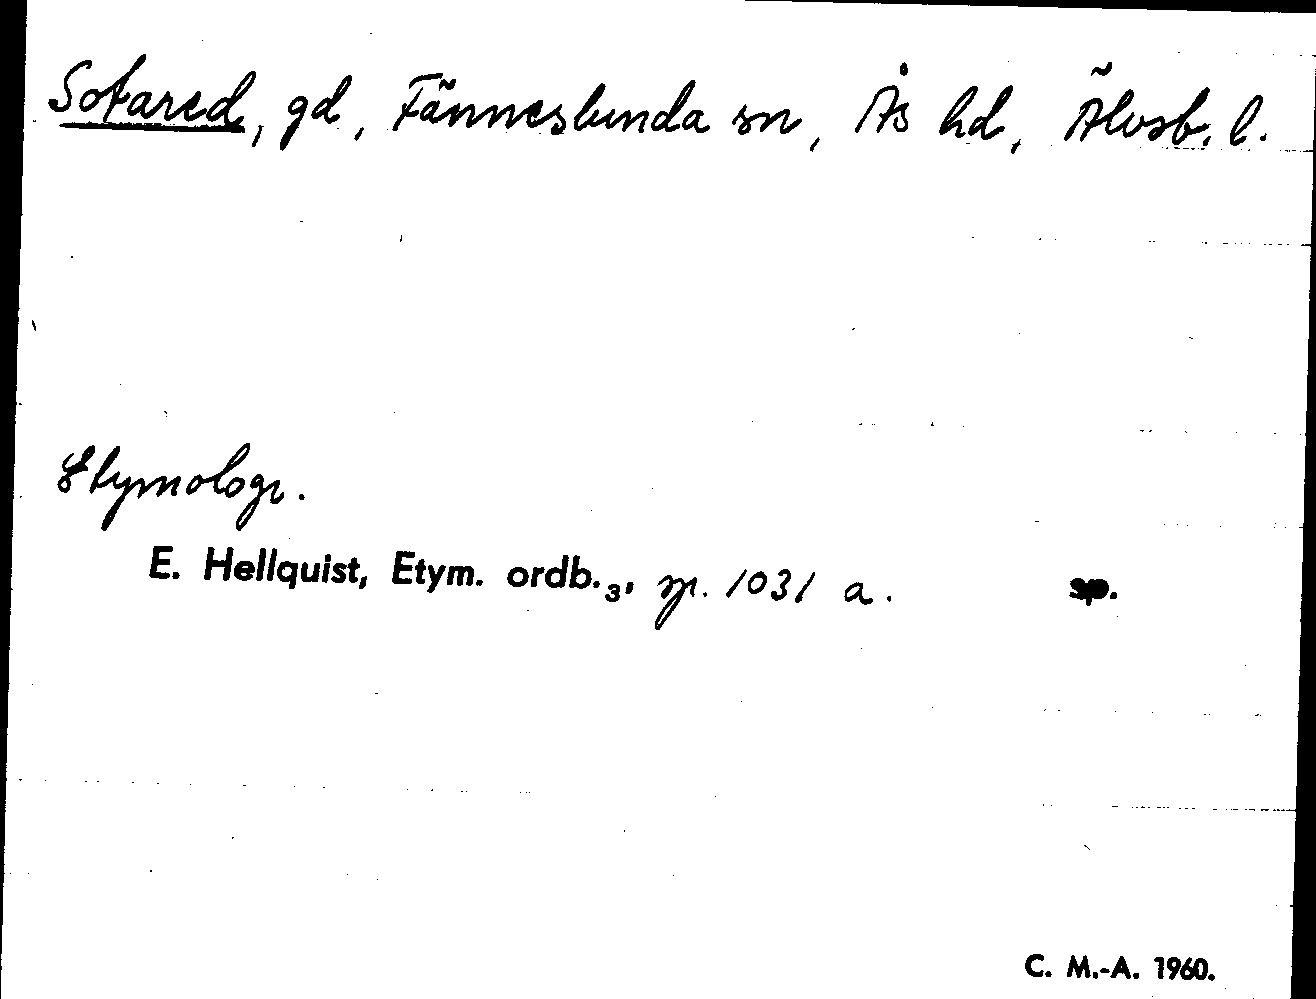 Sotared, gd, Fänneslunda sn, Ås hd, Älvsb. l.
Etymologi.
E. Hellquist, Etym. ordb.₃, sp. 1031 a. sp.
C. M.-A. 1960.